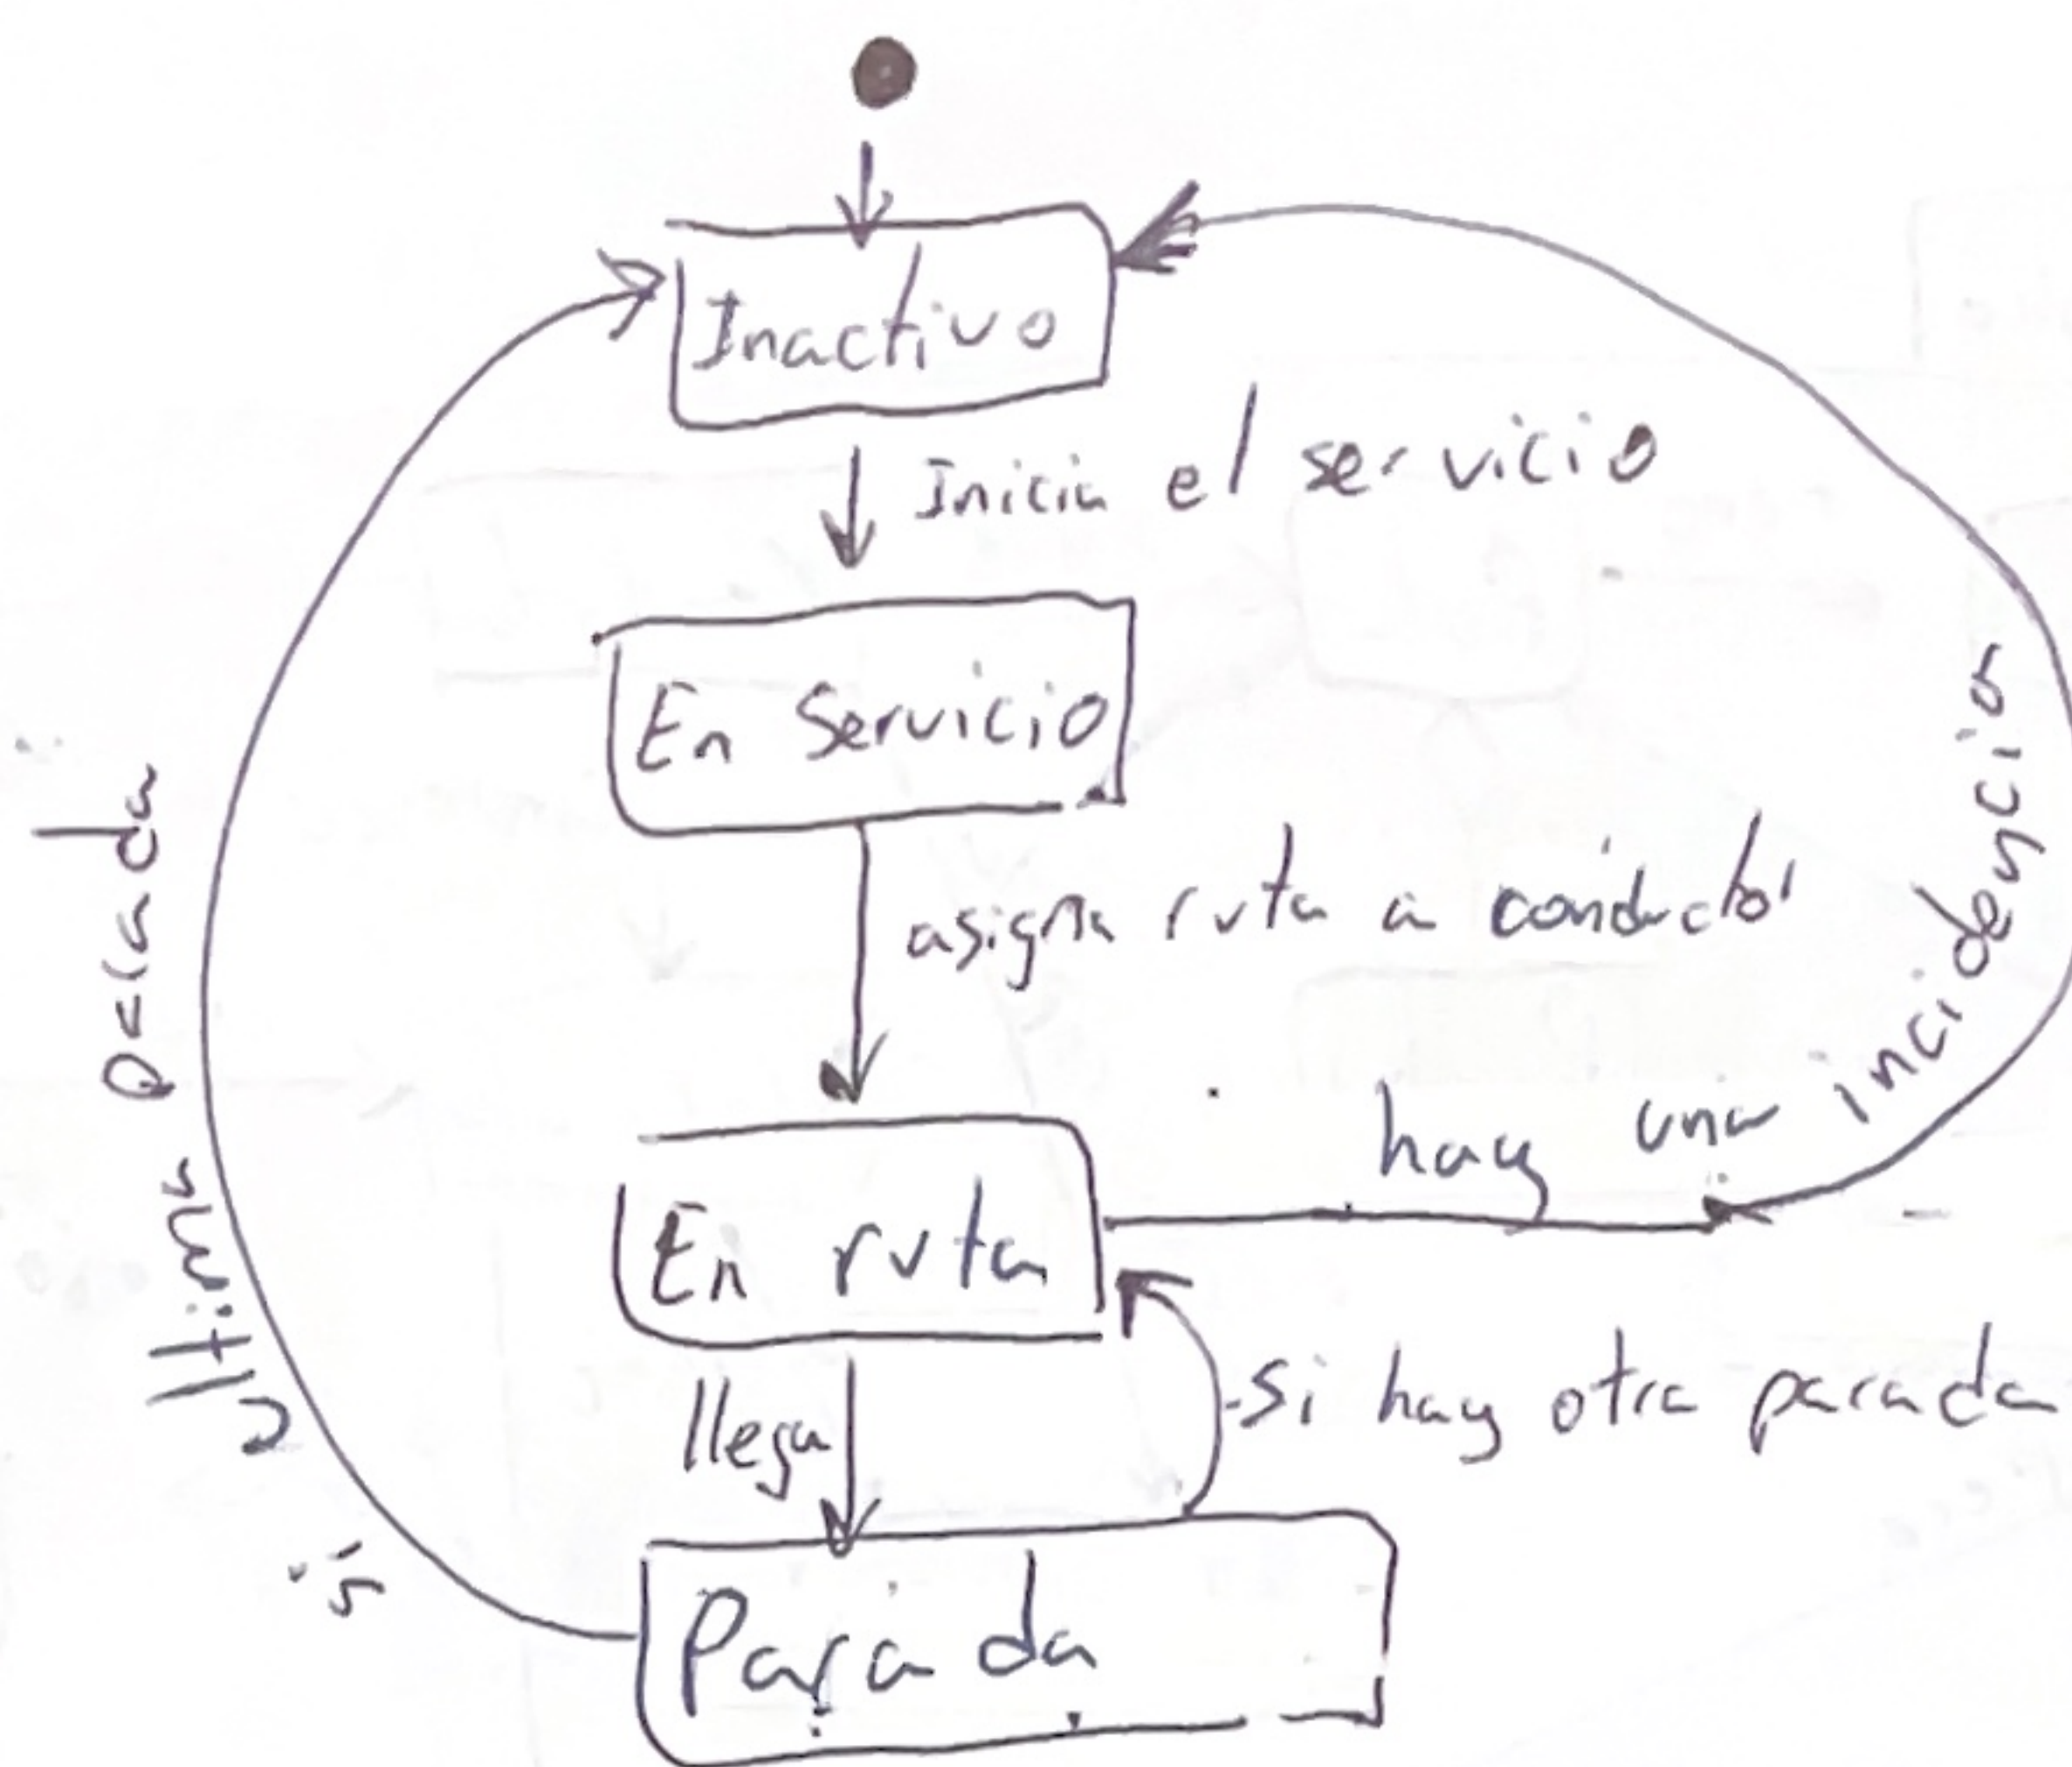 Inactivo
Inicia el servicio
En Servicio
asigna ruta a conductor
En ruta
hay una incidencia
llega
si hay otra parada
Parada
si última parada